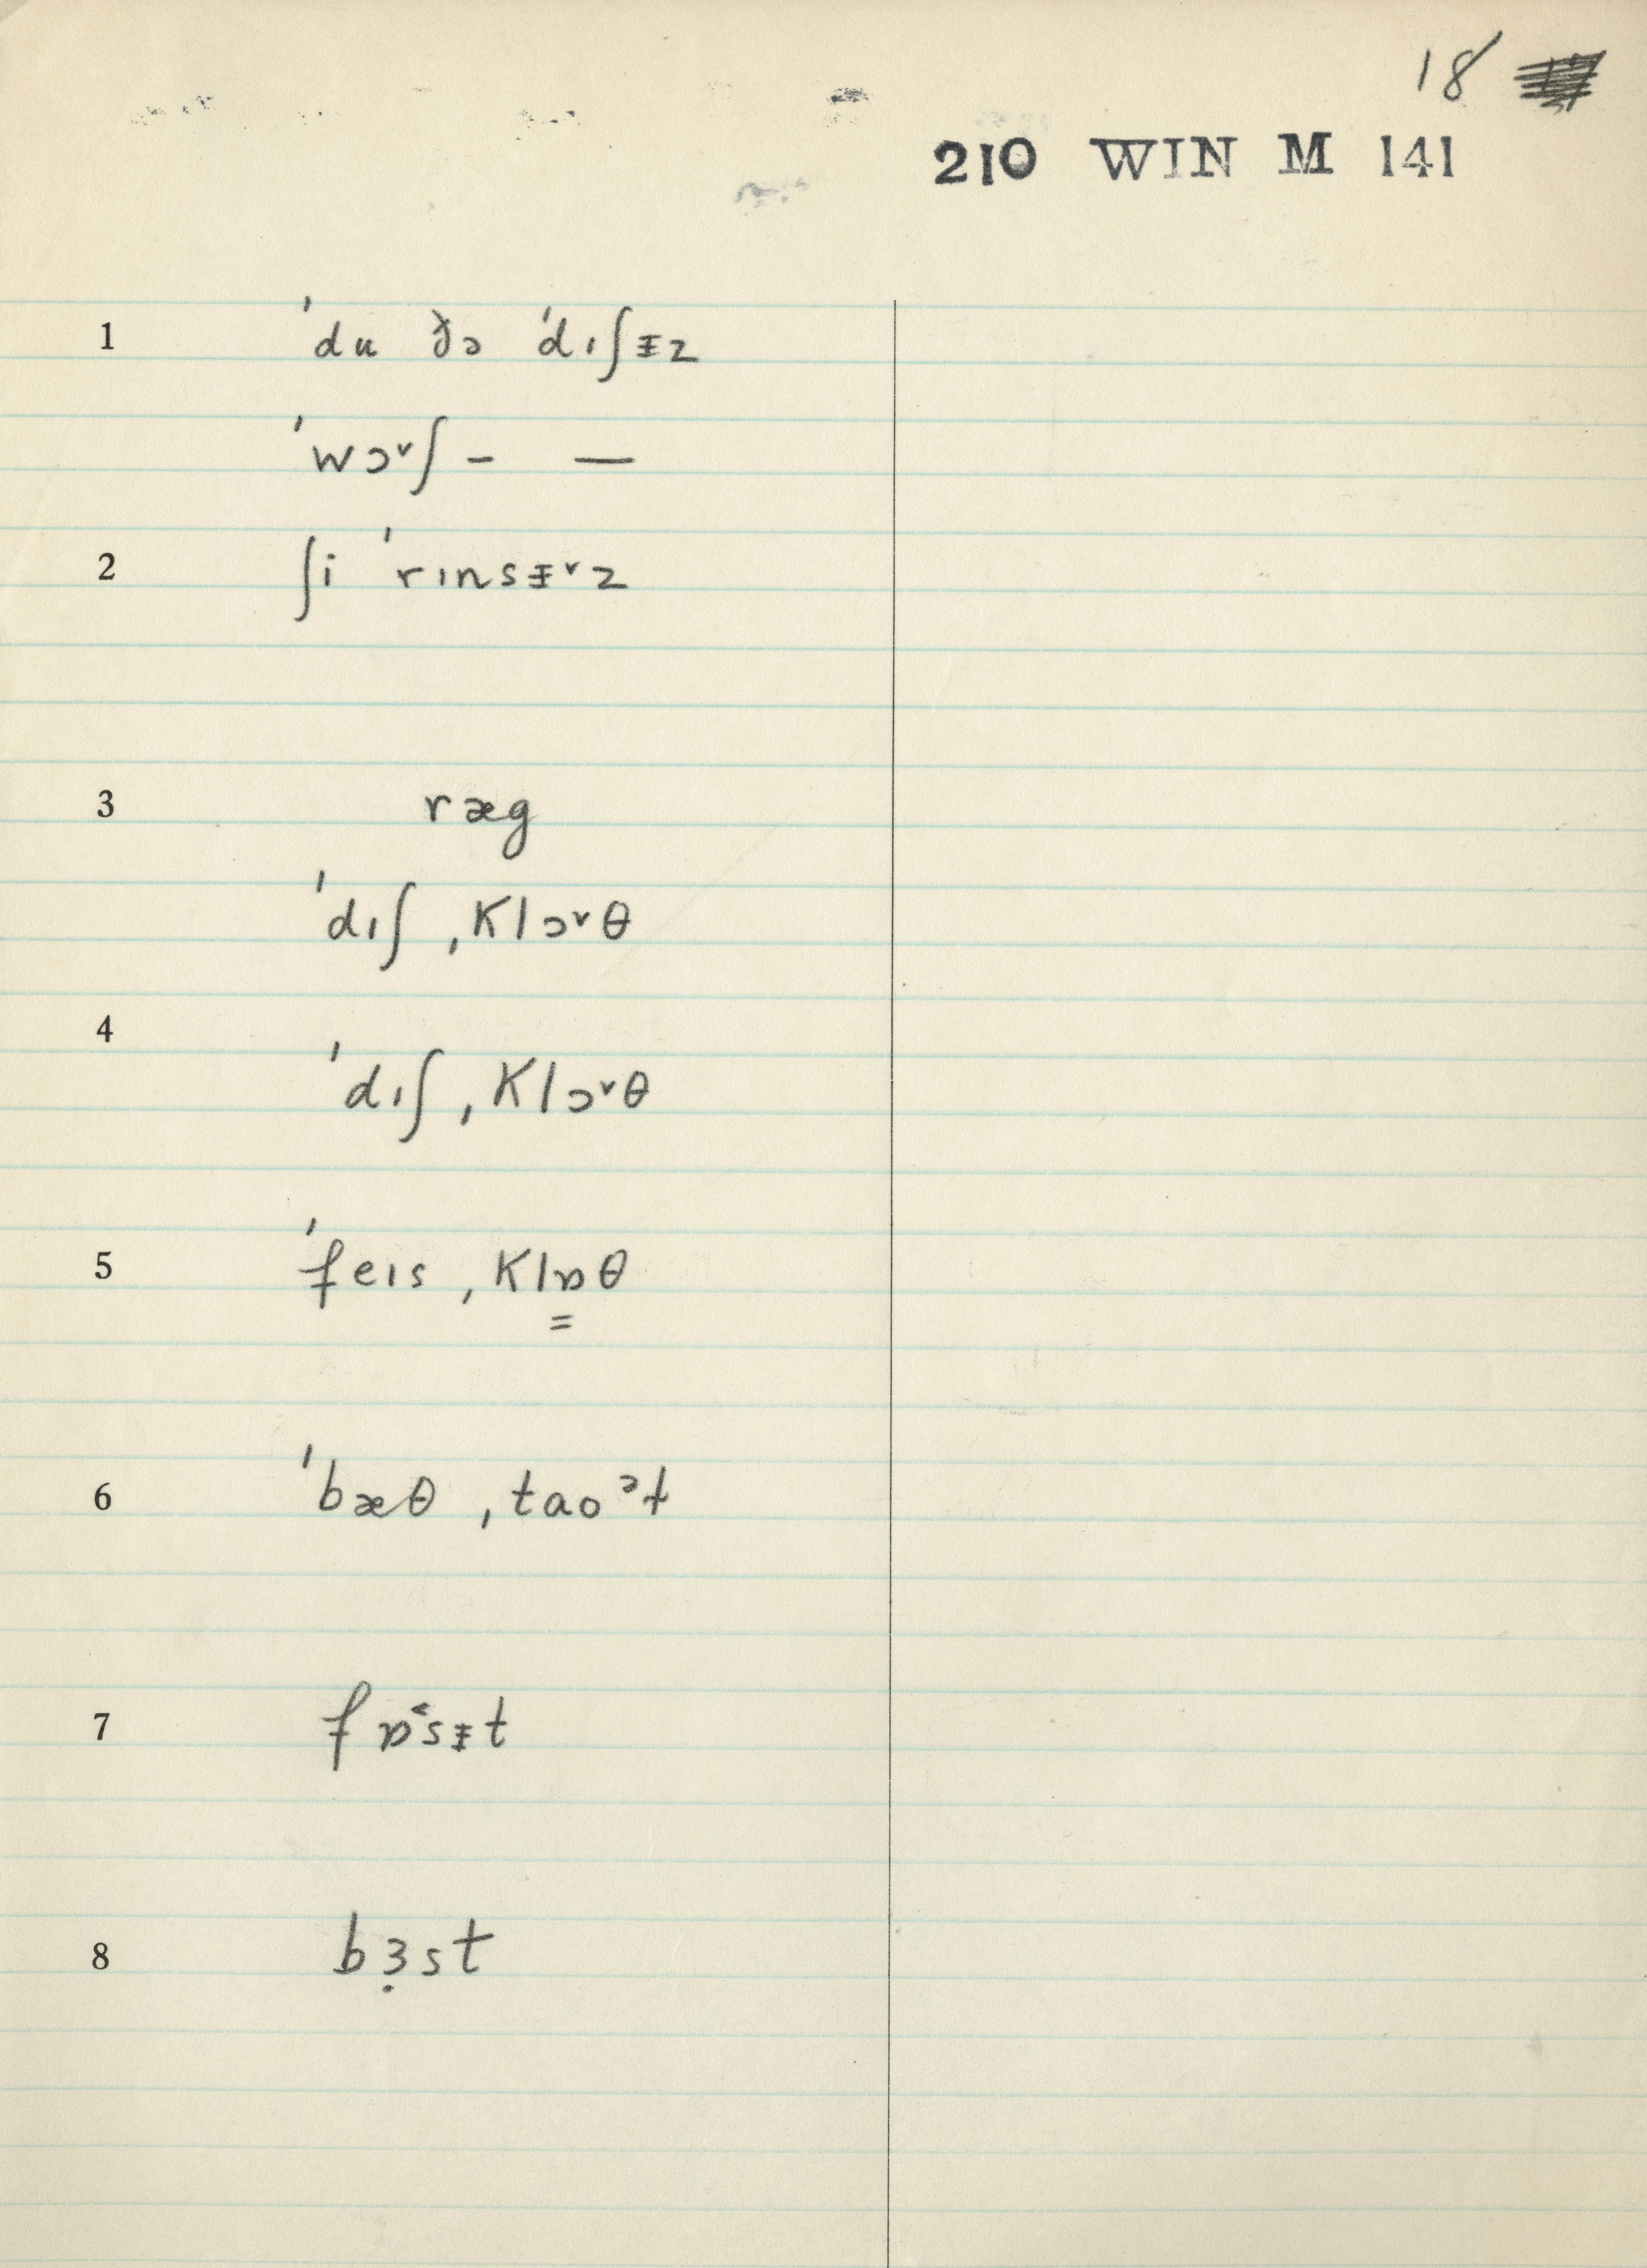 18
210 WIN M 141
1 ˈdu ðə ˈdɪʃᵻz
ˈwɔ˅ʃ – —
2 ʃi ˈrɪnsᵻ˅z
3 ræg
ˈdɪʃ ˌklɔ˅θ
4
ˈdɪʃ ˌklɔ˅θ
5 ˈfeɪs ˌklɒ͇θ
6 ˈbæθ ˌtaoᵊɫ
7 fɒ˂sᵻt
8 bɜ̣st